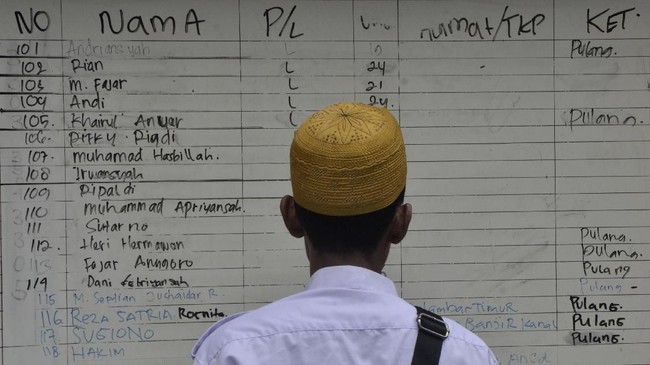 NO NAMA P/L KET.
101 Andriansyah L Pulang.
102 Rian L 24
103 M. Fajar L 21
104 Andi L 24.
105. Khairul Anwar L Pulang.
106. Rigdi
107. muhamad Hasbillah.
108 Irwansyah
109 Ripaldi
110 muhammad Apriyansah.
111 Sutarno Pulang.
112. Heri Hermawan Pulang.
113 Fajar Anggoro Pulang
114 Dani Pulang
115 M. Septian R. Pulang
116 REZA SATRIA Pulang
117 SUGIONO Pulang
118 HAKIM